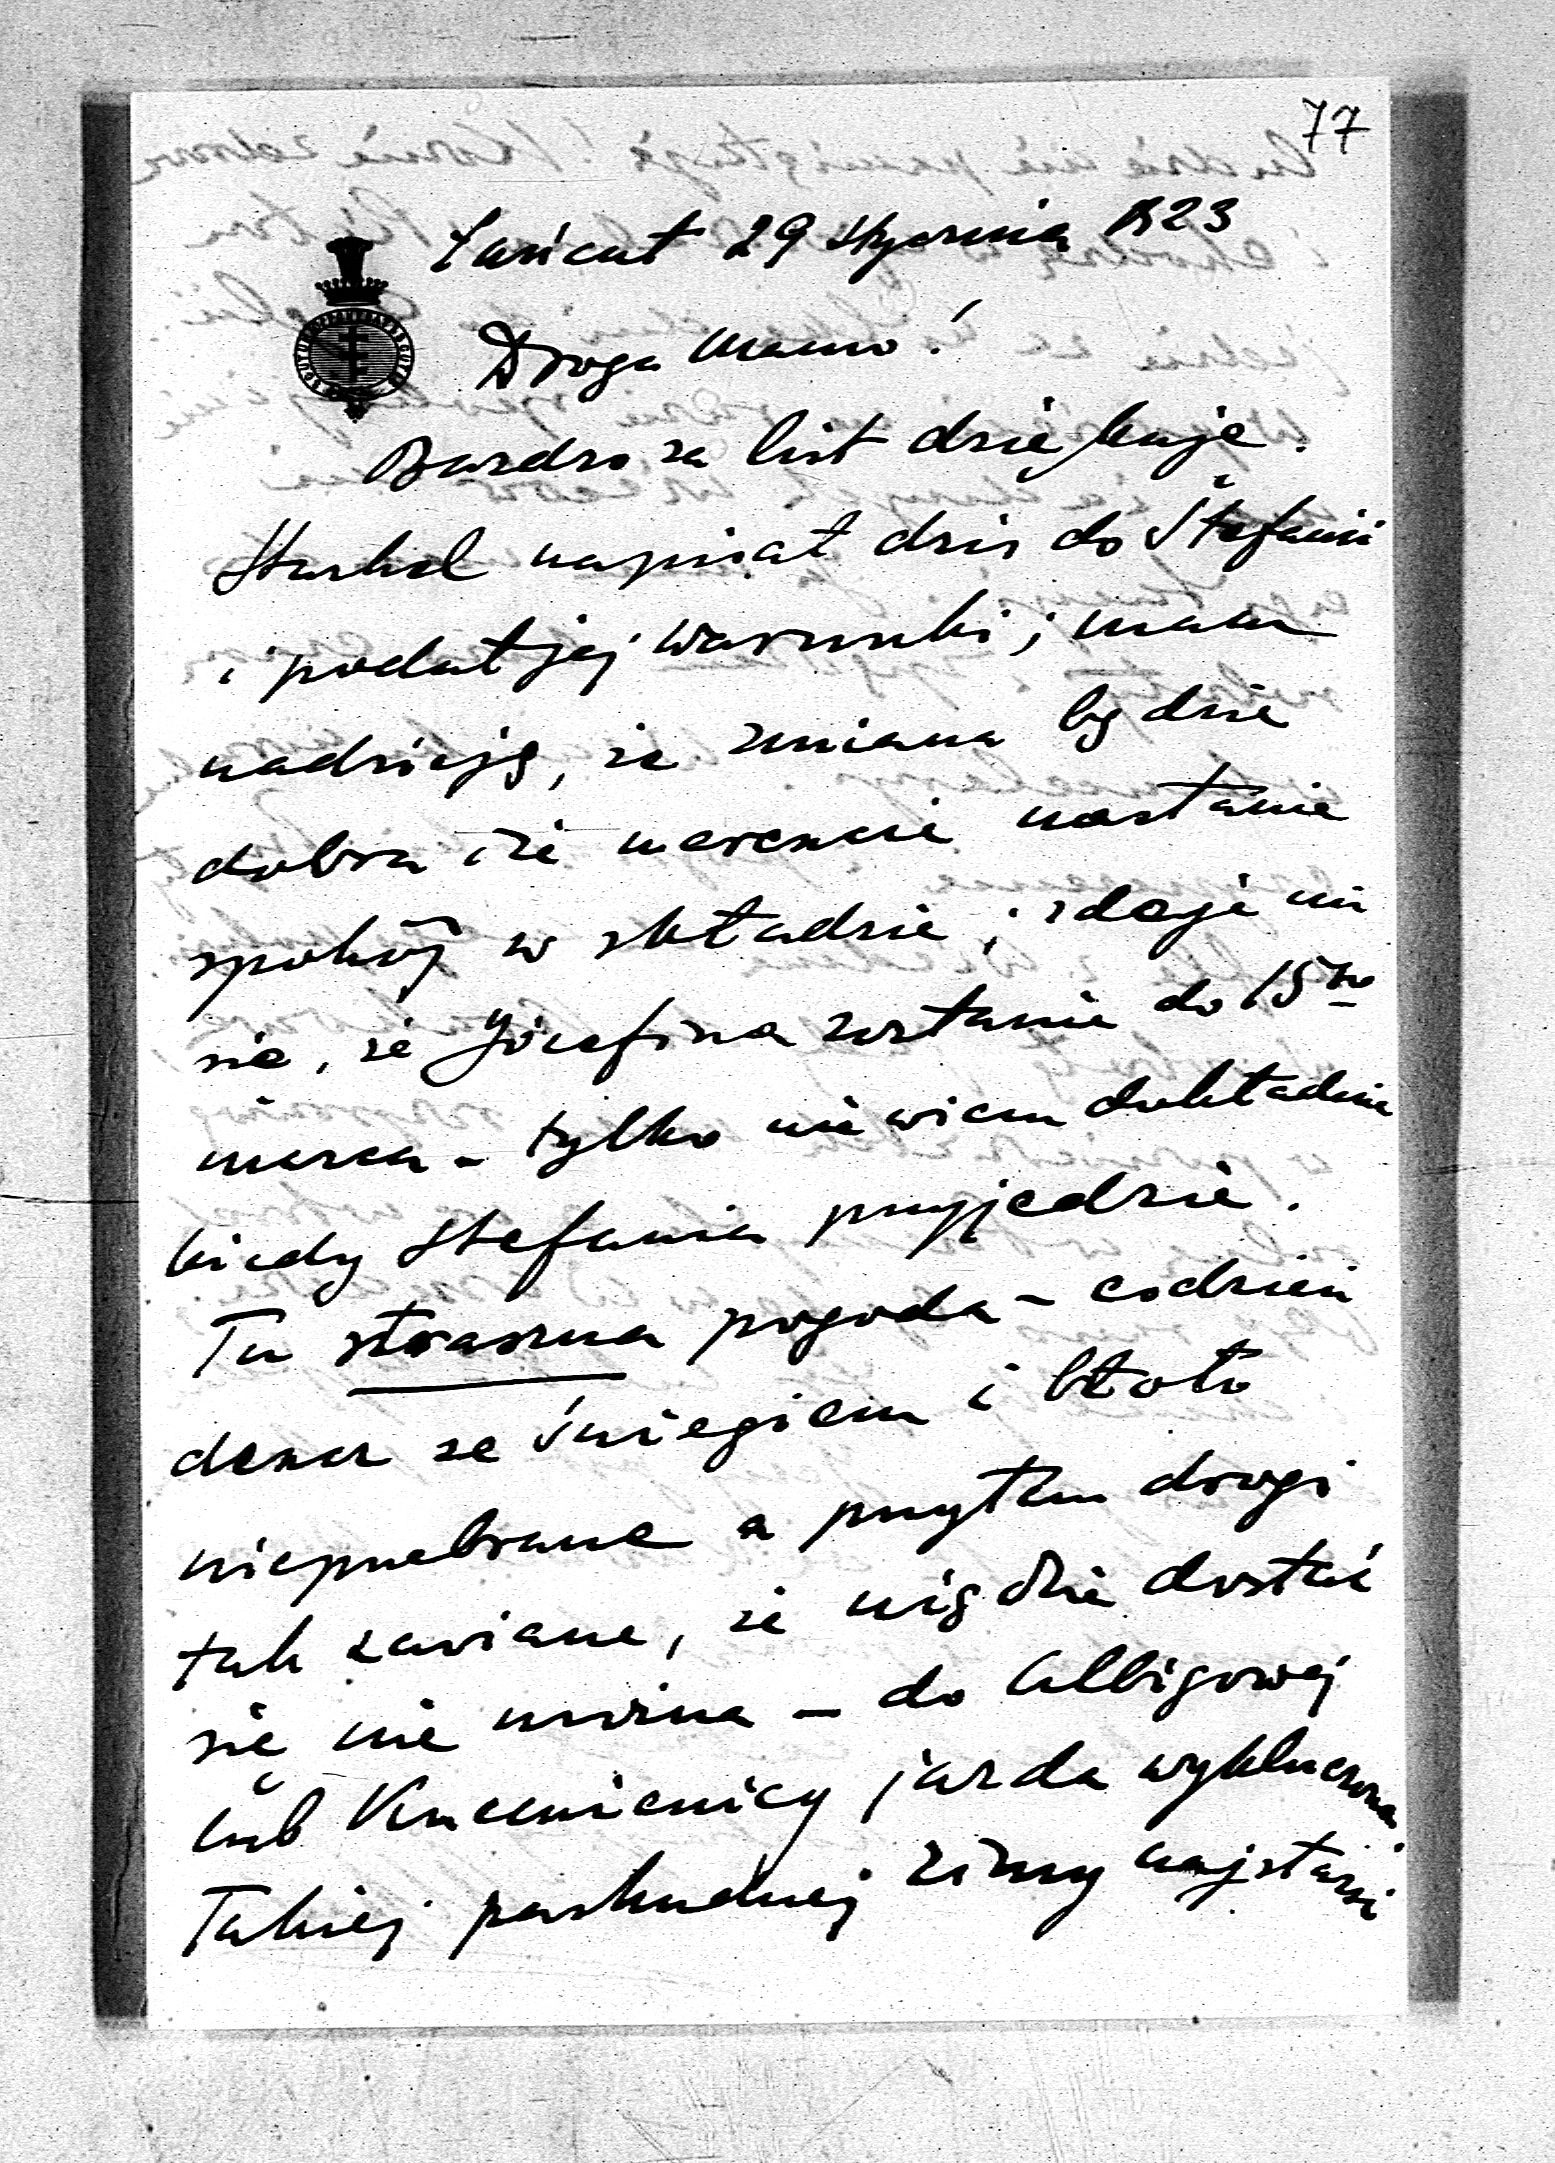 77
Łańcut 29 stycznia 1923
Droga Mamo!
Bardzo za list dziękuję.
napisał dziś do Stefanii
i podał jej warunki; mam
nadzieję, że zmiana będzie
dobra i że nareszcie nastanie
spokój w składzie; zdaje mi
się, że Józefina zostanie do 15go
marca – tylko nie wiem dokładnie
kiedy Stefania przyjedzie.
Tu straszna pogoda – codzień
deszcz ze śniegiem i błoto
nieprzebrane a przytem drogi
tak zawiane, że nigdzie dostać
się nie można – do Albigowej
lub Kraczkowej jazda wykluczona.
Takiej paskudnej zimy najstarsi